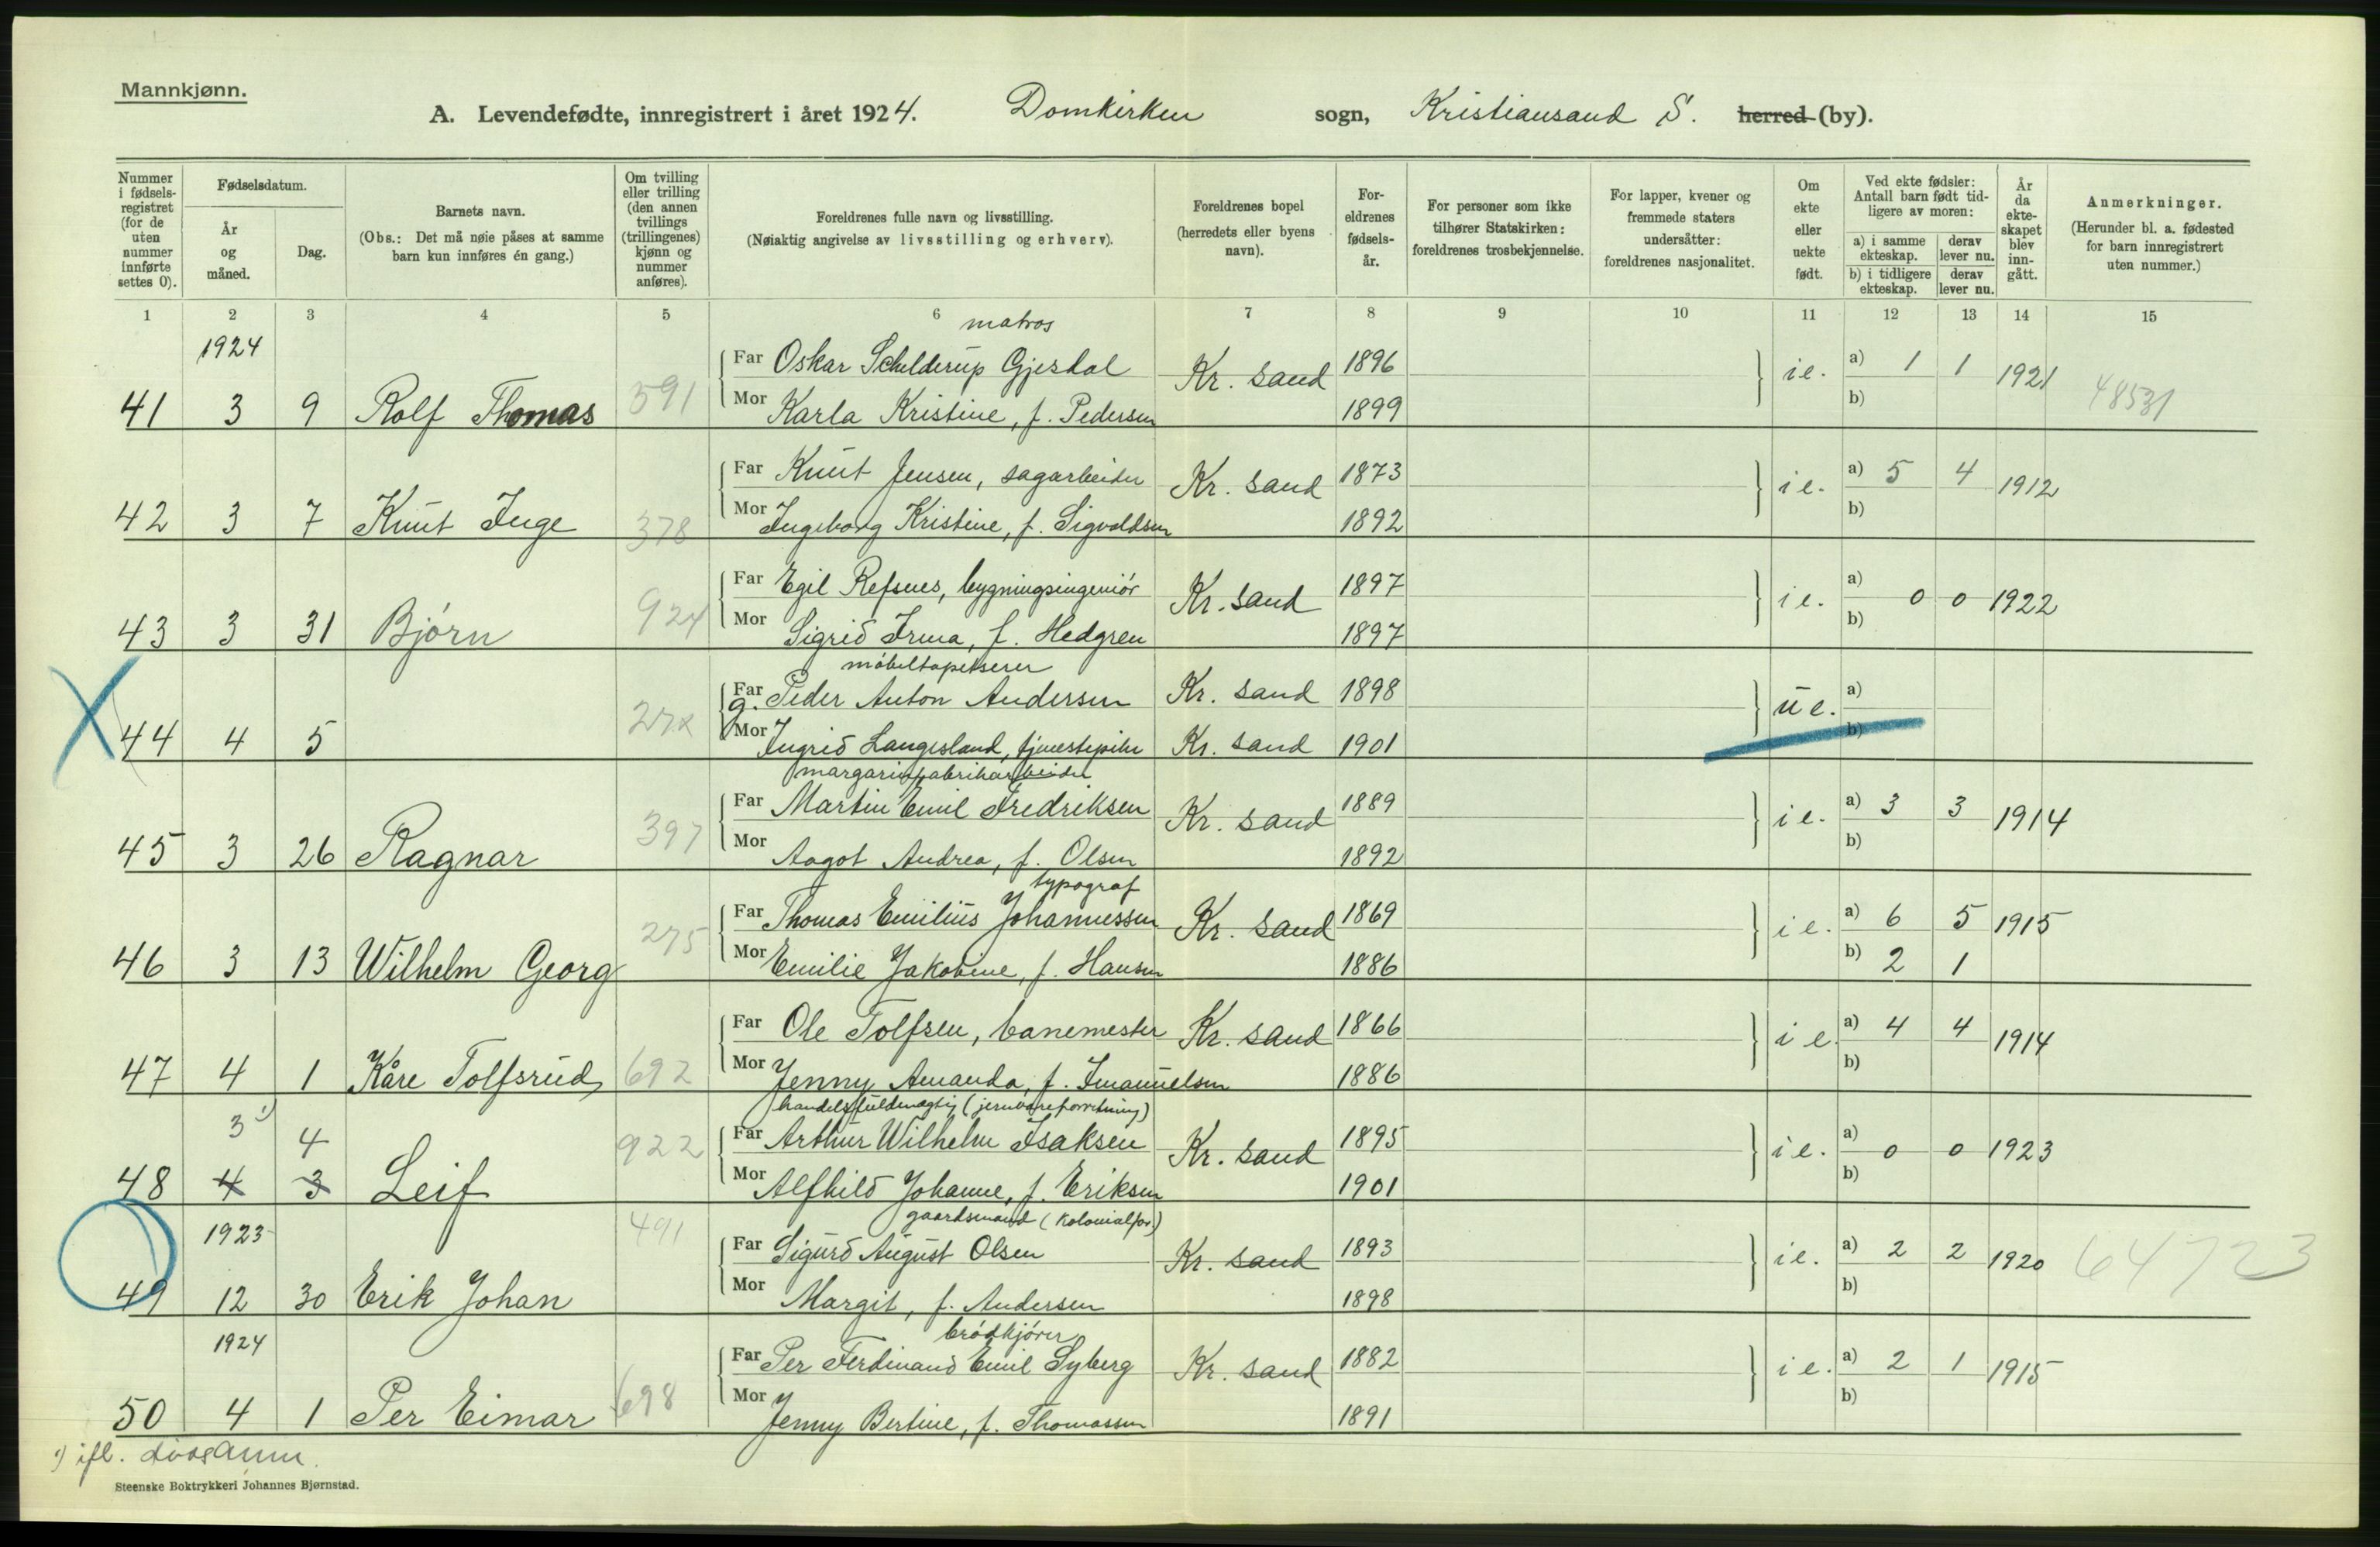 Mannkjønn.
A. Levendefødte, innregistrert i året 1924. Domkirken sogn, Kristiansand S. herred (by).
Nummer i fødsels-registret (for de uten nummer innførte settes 0).
Fødselsdatum.
År og måned.
Dag.
Barnets navn.
(Obs.: Det må nøie påses at samme barn kun innføres én gang.)
Om tvilling eller trilling (den annen tvillings (trillingenes) kjønn og nummer anføres).
Foreldrenes fulle navn og livsstilling.
(Nøiaktig angivelse av livsstilling og erhverv).
Foreldrenes bopel (herredets eller byens navn).
For-eldrenes fødsels-år.
For personer som ikke tilhører Statskirken: foreldrenes trosbekjennelse.
For lapper, kvener og fremmede staters undersåtter: foreldrenes nasjonalitet.
Om ekte eller uekte født.
Ved ekte fødsler: Antall barn født tid-ligere av moren:
a) i samme ekteskap.
derav lever nu.
b) i tidligere ekteskap.
derav lever nu.
År da ekte-skapet blev inn-gått.
Anmerkninger.
(Herunder bl. a. fødested for barn innregistrert uten nummer.)
1 2 3 4 5 6 7 8 9 10 11 12 13 14 15
1924
matros
Far Oskar Schelderup Gjesdal Kr. sand 1896 ie. a) 1 1 1921
41 3 9 Rolf Thomas 591 Mor Karla Kristine, f. Pedersen 1899 b) 48531
Far Knut Jensen, sagarbeider Kr. sand 1873 ie. a) 5 4 1912
42 3 7 Knut Inge 378 Mor Ingeborg Kristine, f. Sigvaldsen 1892 b)
Far Egil Refsnes, bygningsingeniör Kr. sand 1897 ie. a) 0 0 1922
43 3 31 Björn 924 Mor Sigrid Irma, f. Hedgren 1897 b)
möbeltapetserer
Far g. Peder Anton Andersen Kr. sand 1898 ue. a)
44 4 5 Mor Ingrid Langesland, tjenestepike Kr. sand 1901 b)
margarinfabrikarbeider
Far Martin Emil Fredriksen Kr. sand 1889 ie. a) 3 3 1914
45 3 26 Ragnar 397 Mor Aagot Andrea, f. Olsen 1892 b)
typograf
Far Thomas Emilius Johannessen Kr. sand 1869 ie. a) 6 5 1915
46 3 13 Wilhelm Georg 275 Mor Emilie Jakobine, f. Hansen 1886 b) 2 1
Far Ole Tolfsen, banemester Kr. sand 1866 ie a) 4 4 1914
47 4 1 Kåre Tolfsrud 692 Mor Jenny Amanda, f. Imanuelsen 1886 b)
handelsfuldmægtig (jernvareforretning)
3 1) 4 922 Far Arthur Wilhelm Isaksen Kr. sand 1895 ie. a) 0 0 1923
48 4 3 Leif Mor Alfhild Johanne, f. Eriksen 1901 b)
gaardsmand (kolonialfor.)
1923 491 Far Sigurd August Olsen Kr. sand 1893 ie. a) 2 2 1920 64723
49 12 30 Erik Johan Mor Margit, f. Andersen 1898 b)
brödkjörer
1924 Far Per Ferdinand Emil Syberg Kr. sand 1882 ie. a) 2 1 1915
50 4 1 Per Eimar 698 Mor Jenny Bertine, f. Thomassen 1891 b)
1) ifl.
Steenske Boktrykkeri Johannes Bjørnstad.